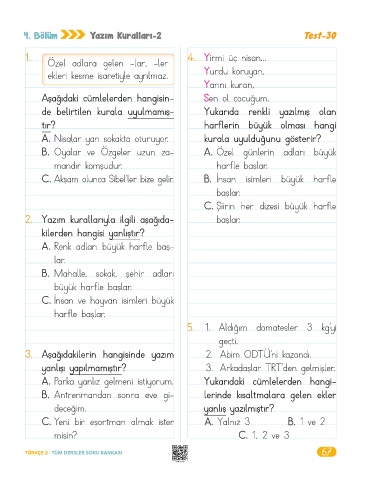 4. Bölüm Yazım Kuralları-2 Test-30
1. Özel adlara gelen -lar, -ler
ekleri kesme işaretiyle ayrılmaz.
Aşağıdaki cümlelerden hangisin-
de belirtilen kurala uyulmamış-
tır?
A. Nisalar yan sokakta oturuyor.
B. Oyalar ve Özgeler uzun za-
mandır komşudur.
C. Akşam olunca Sibel'ler bize gelir.
2. Yazım kurallarıyla ilgili aşağıda-
kilerden hangisi yanlıştır?
A. Renk adları büyük harfle baş-
lar.
B. Mahalle, sokak, şehir adları
büyük harfle başlar.
C. İnsan ve hayvan isimleri büyük
harfle başlar.
3. Aşağıdakilerin hangisinde yazım
yanlışı yapılmamıştır?
A. Parka yanlız gelmeni istiyorum.
B. Antrenmandan sonra eve gi-
deceğim.
C. Yeni bir eşortman almak ister
misin?
4. Yirmi üç nisan...
Yurdu koruyan,
Yarını kuran,
Sen ol çocuğum.
Yukarıda renkli yazılmış olan
harflerin büyük olması hangi
kurala uyulduğunu gösterir?
A. Özel günlerin adları büyük
harfle başlar.
B. İnsan isimleri büyük harfle
başlar.
C. Şiirin her dizesi büyük harfle
başlar.
5. 1. Aldığım domatesler 3 kg'yi
geçti.
2. Abim ODTÜ'ni kazandı.
3. Arkadaşlar TRT'den gelmişler.
Yukarıdaki cümlelerden hangi-
lerinde kısaltmalara gelen ekler
yanlış yazılmıştır?
A. Yalnız 3 B. 1 ve 2
C. 1, 2 ve 3
TÜRKÇE 2 TÜM DERSLER SORU BANKASI
67